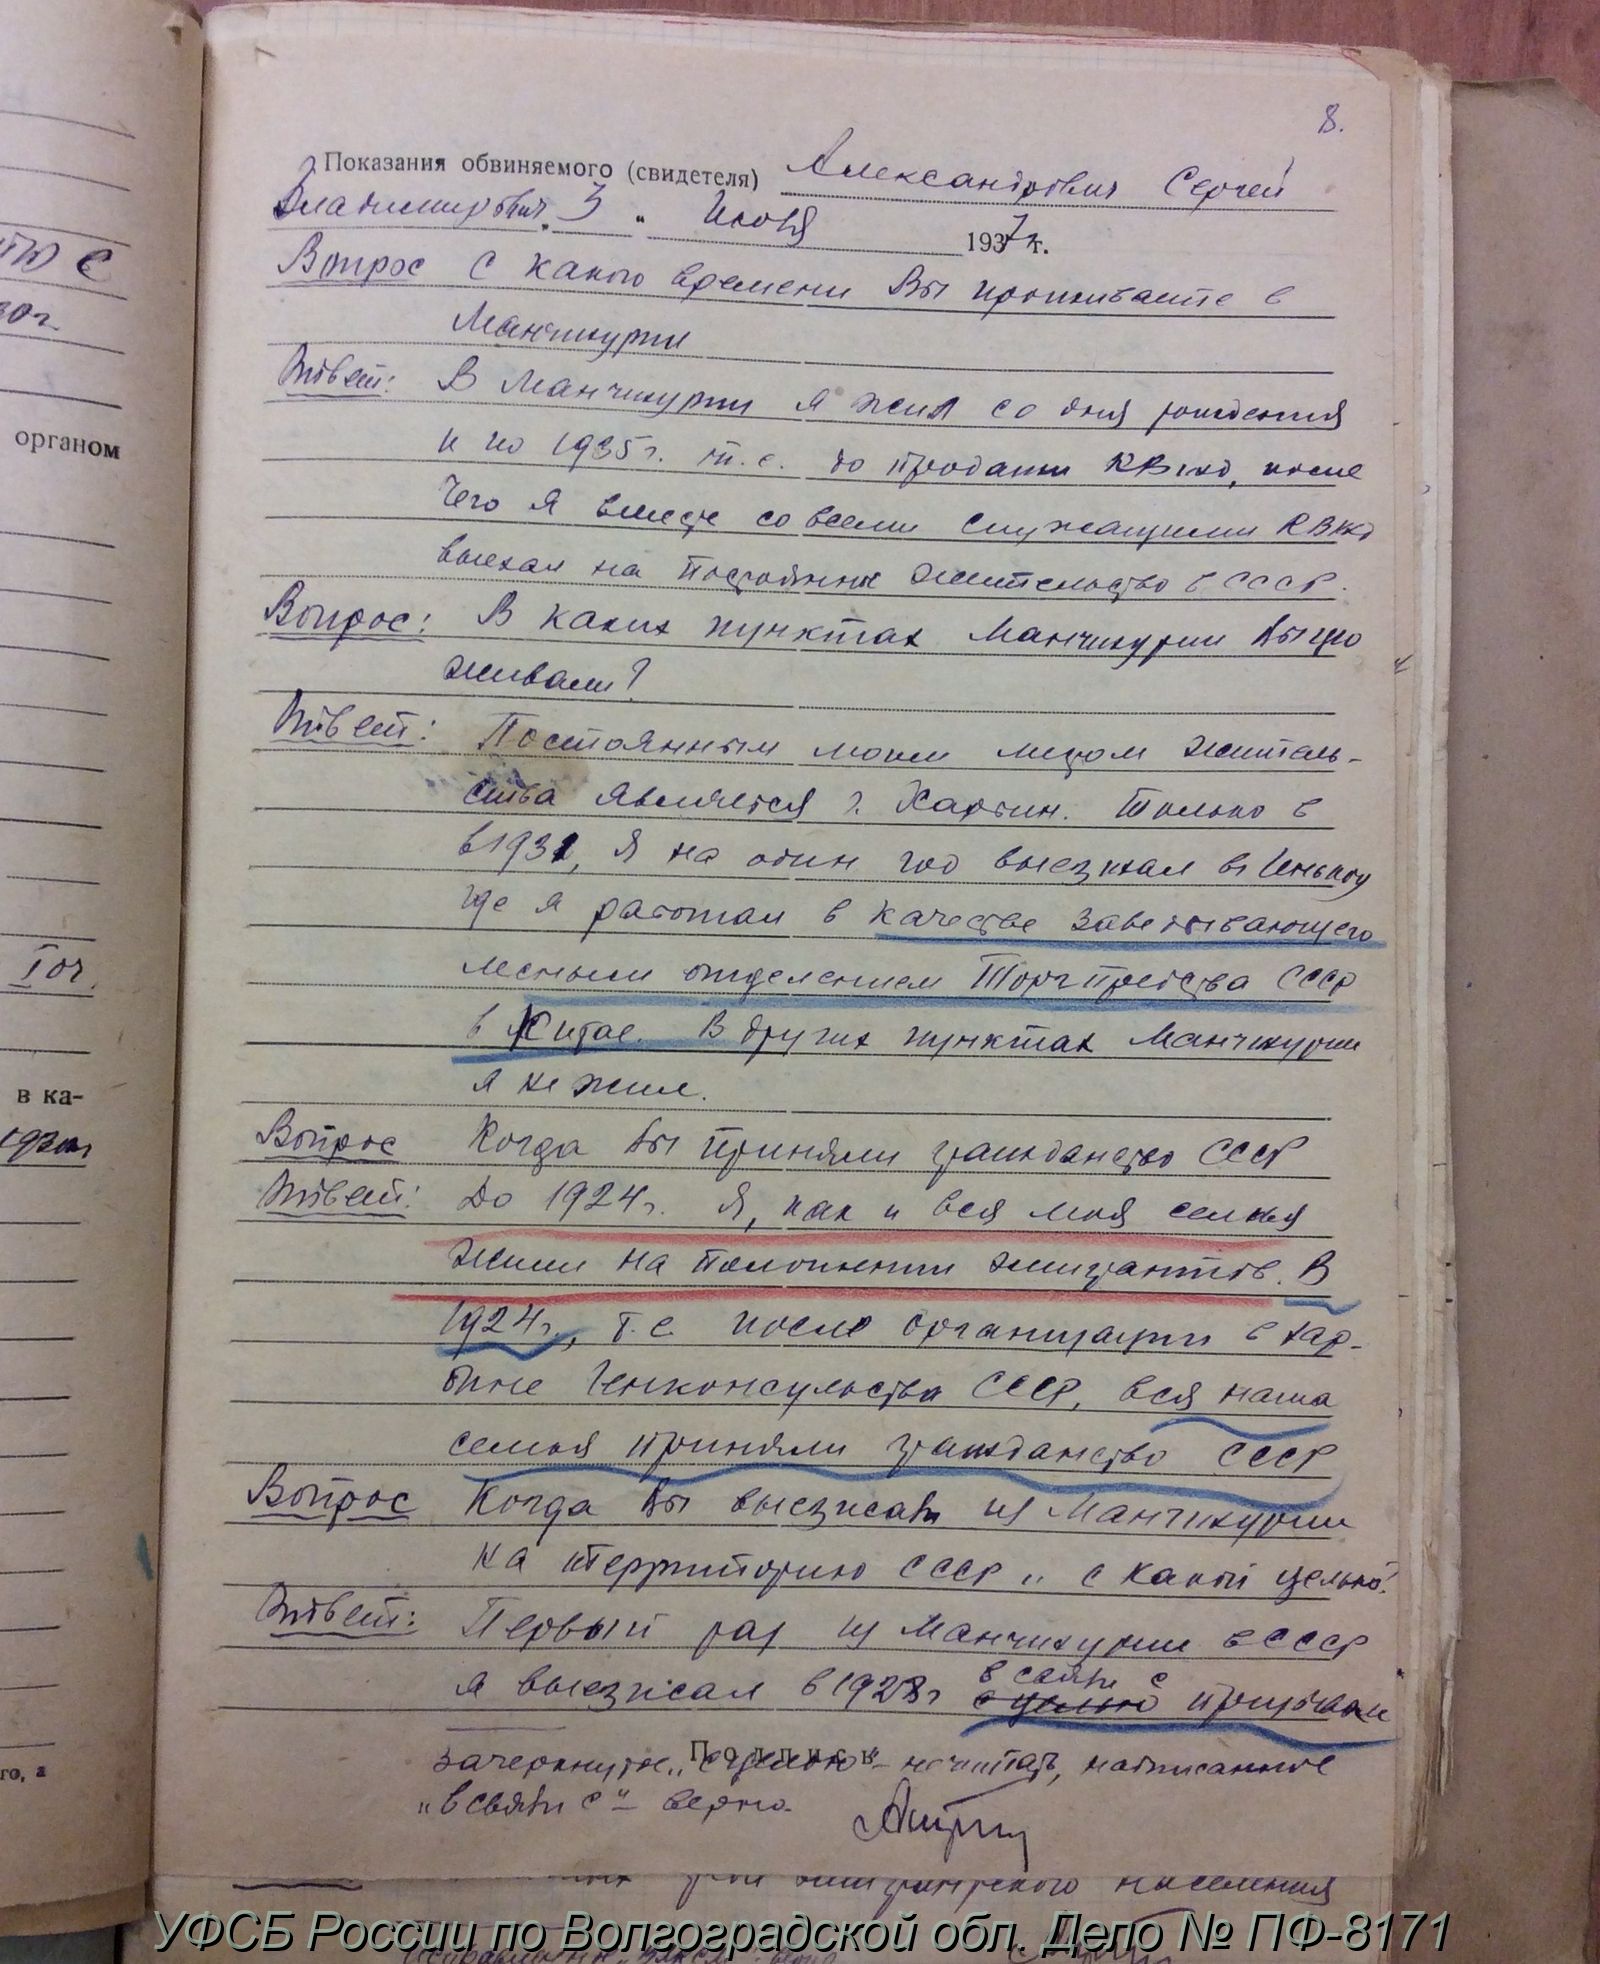 8.
Показания обвиняемого (свидетеля) Александрович Сергей
Владимирович „ 3 " Июня 1937 г.
Вопрос С какого времени Вы проживаете в
Манчжурии
Ответ: В Манчжурии я жил со дня рождения
и по 1935 г. т.е. до продажи КВжд, после
чего я вместе со всеми служащими КВжд
выехал на постоянное жительство в СССР.
Вопрос: В каких пунктах Манчжурии Вы про
живали?
Ответ: Постоянным моим местом житель-
ства является г. Харбин. Только в
в 1931, я на один год выезжал в Инькоу
где я работал в качестве заведывающего
местным отделением Торгпредства СССР
в Китае. В других пунктах Манчжурии
я не жил.
Вопрос Когда Вы приняли гражданство СССР
Ответ: До 1924 г. Я, как и вся моя семья
жили на положении эмигрантов. В
1924 г., т.е. после организации в Хар-
бине Генконсульства СССР, вся наша
семья приняли гражданство СССР
Вопрос Когда Вы выезжали из Манчжурии
на территорию СССР и с какой целью?
Ответ: Первый раз из Манчжурии в СССР
я выезжал в 1928 г в связи с с целью призывом
Подпись
Зачеркнутое „с целью" – не читать, надписанное
„в связи с" – верно.
органом
в ка-
го, а
эмигрантского населения
УФСБ России по Волгоградской обл. Дело № ПФ-8171